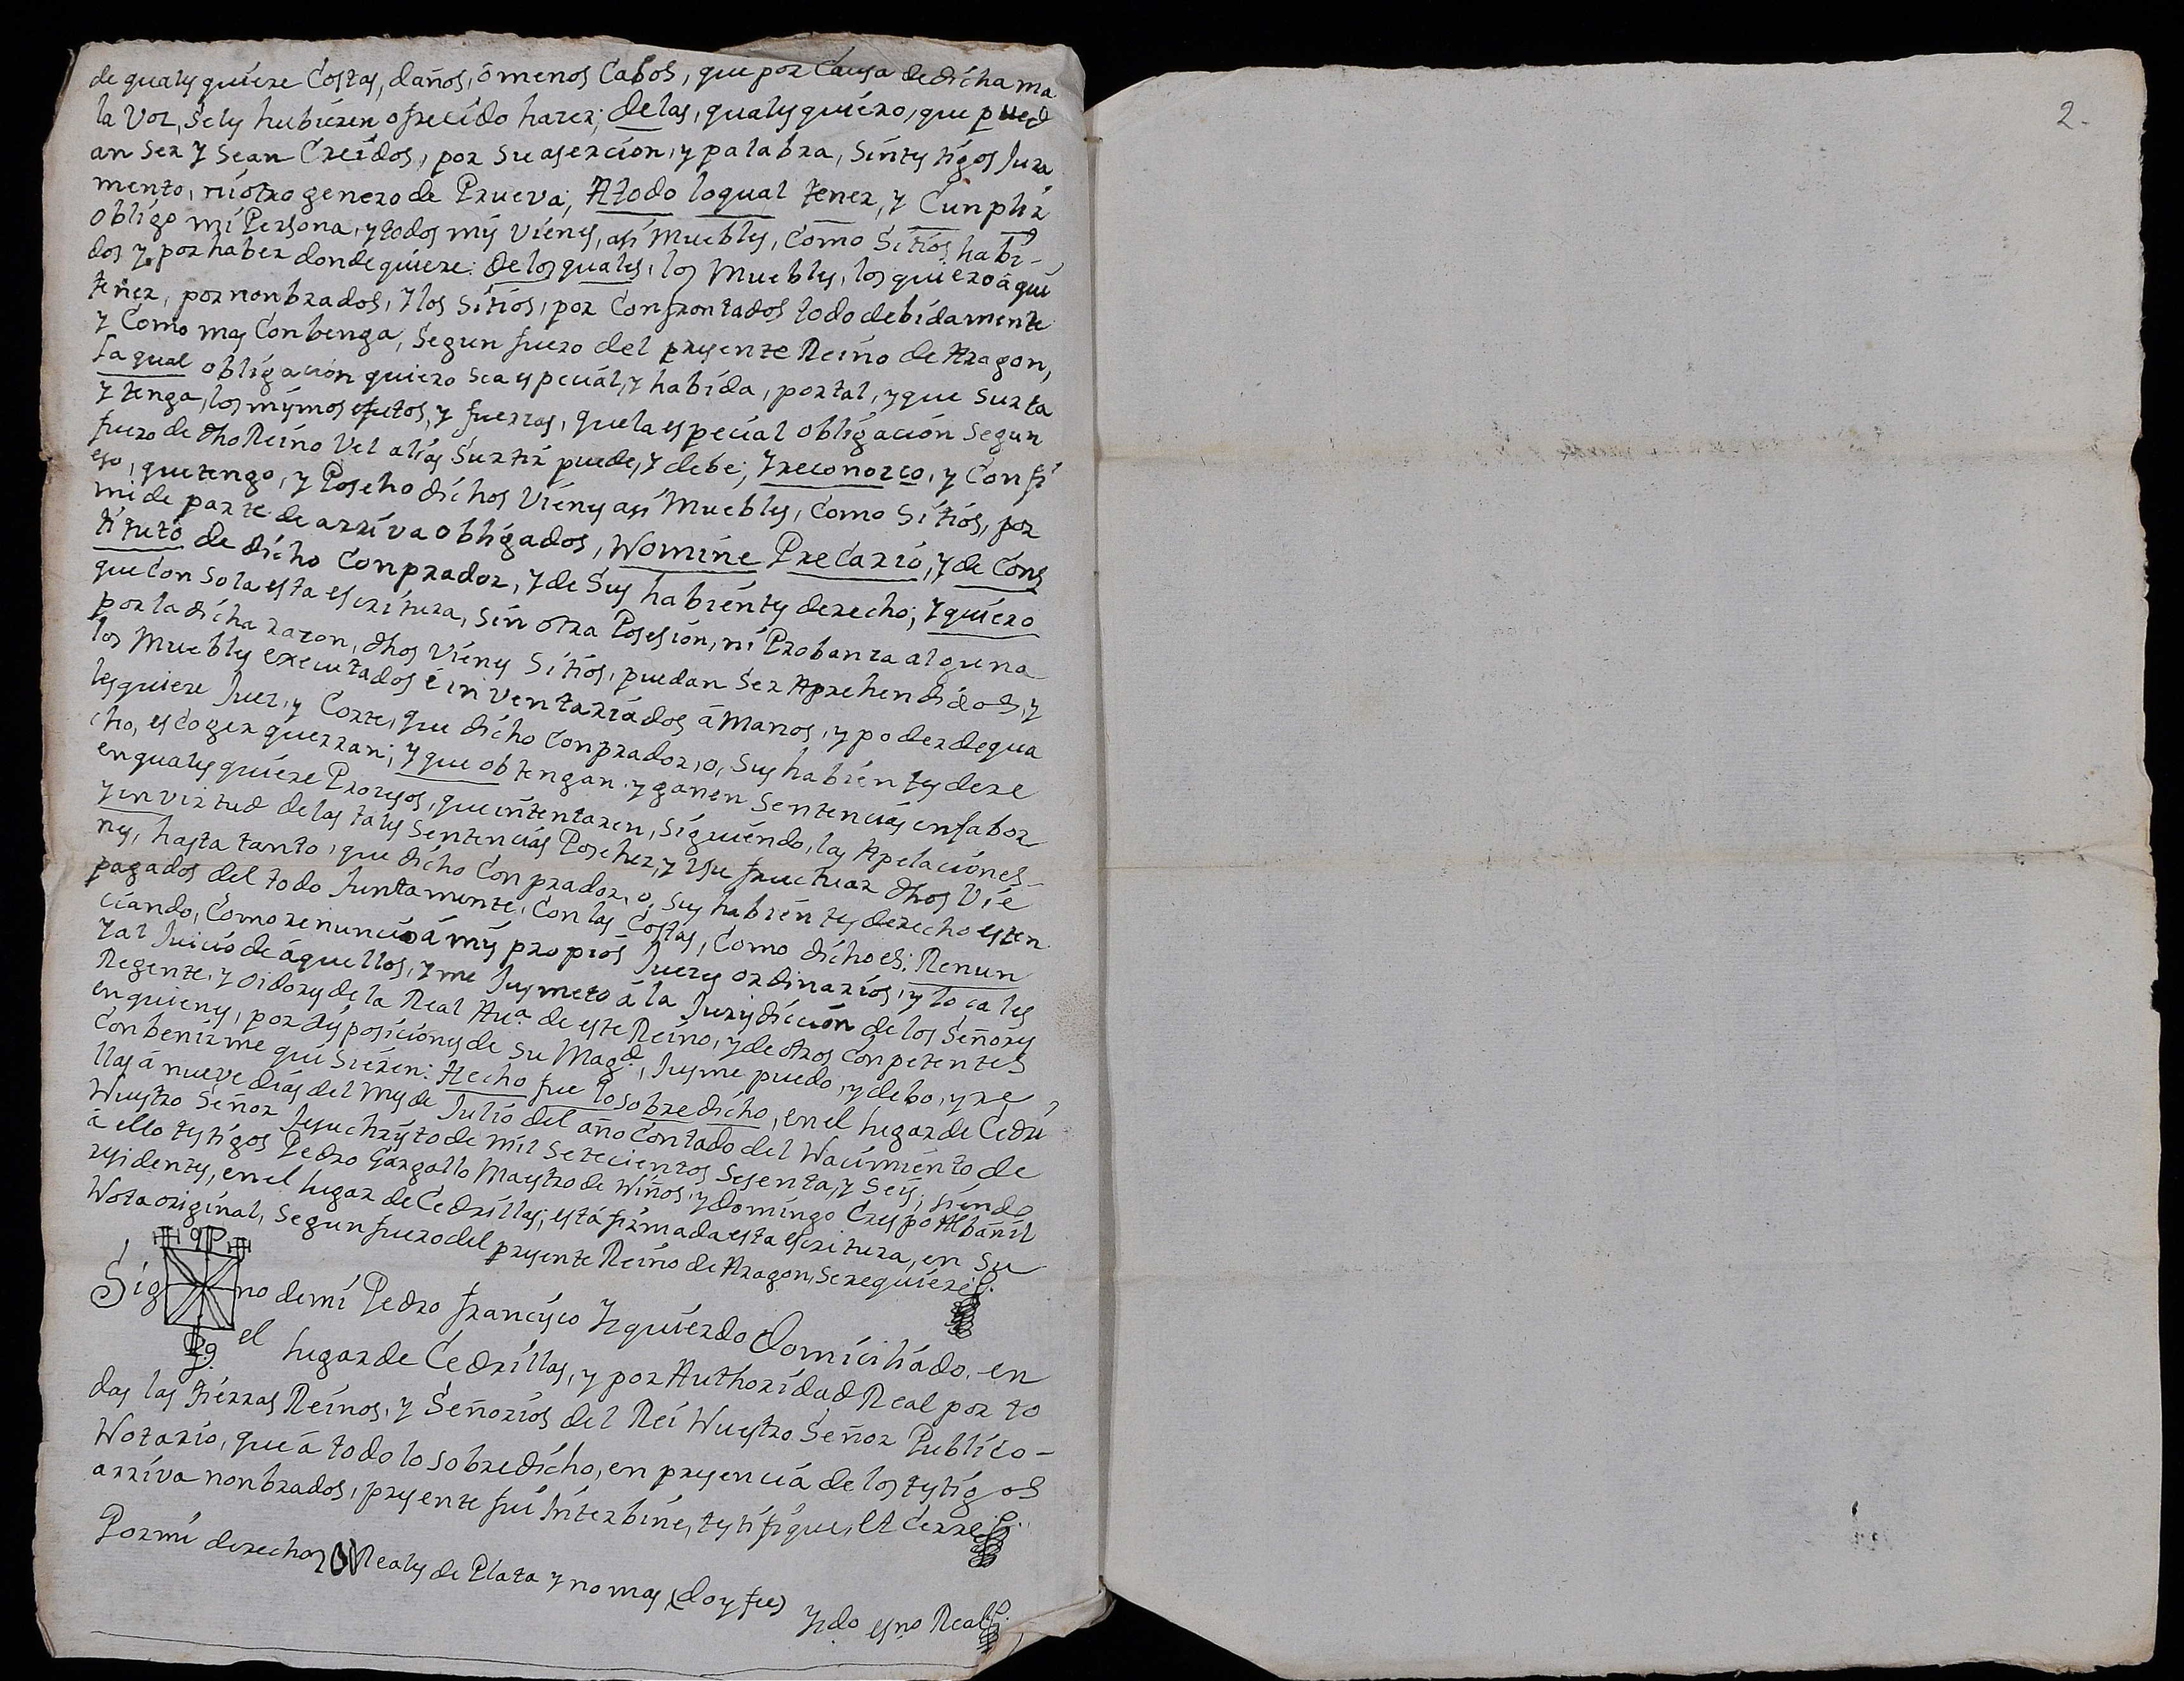 de qualesquiere Costas, daños, ó menos Cabos, que por Causa de dicha ma
la Voz, Seles hubieren ofrecido hazer; delas, quales quiero, que pued
an Ser y Sean Creidos, por Su asercion, y palabra, Sintestigos Jura
mento, niotro genero de Prueva; Atodo loqual tener, y Cunplir
obligo mi Persona, y todos mis Vienes, asi Muebles, Como Sitios, habi-
dos y por haber donde quiere: delos quales, los Muebles, los quiero áqui
tener, por nonbrados, y los Sitios, por Confrontados todo debidamente
y Como mas Conbenga, Segun fuero del presente Reino de Aragon,
Laqual obligacion quiero Sea especial, y habida, por tal, y que Surta
y tenga, los mismos efectos, y fuerzas, quela especial obligacion Segun
fuero de dho Reino Vel alias Surtir puede, y debe; y reconozco, y Confi
eso, que tengo, y Poseho dichos Vienes asi Muebles, Como Sitios, por
mi de parte de arriva obligados, Nomine Precario, y de Cons
tituto de dicho Conprador, y de Sus habientes derecho; y quiero
que Con Sola esta escritura, Sin otra Posesion, ni Probanza alguna
por la dicha razon, dhos Vienes Sitios, puedan Ser Aprehendidos, y
los Muebles executados é inventariados á Manos, y poder de qua
lesquiere Juez, y Corte, que dicho Conprador, o, Sus habientes dere
cho, escoger querran; y que obtengan y ganen Sentencias en fabor
en quales quiere Procesos, que intentaren, Siguiendo, las Apelaciones-
y en virtud de las tales Sentencias Poseher, y Usufructuar dhos Vie
nes, hasta tanto, que dicho Conprador, o, Sus habientes derecho esten
pagados del todo Juntamente, Con las Costas, Como dicho es: Renun
ciando, Como renuncio á mis propios Juezes ordinarios, y locales
y al Juicio de áquellos, y me Jusmeto á la Jurisdiccion de los Señores
Regente, y Oidores de la Real Au.ª de este Reino, y de otros Conpetentes
en quienes, por disposiciones de Su Mag.d, Jusme puedo, y debo, y re
Conbenirme quisieren: Hecho fue lo sobredicho, en el lugar de Cedri
llas á nueve dias del mes de Julio del año Contado del Nacimiento de
Nuestro Señor Jesuchristo de mil Setecientos Sesenta, y Seis; siendo
á ello testigos Pedro Gargallo Maestro de Niños, y Domingo Crespo Albañil
residentes, en el lugar de Cedrillas; está firmada esta escritura, en Su
Nota original, Segun fuero del presente Reino de Aragon, Serequiere
Sig no de mi Pedro francisco Yzquierdo Domiciliado, en
el lugar de Cedrillas, y por Authoridad Real por to
das las tierras Reinos, y Señorios del Rei Nuestro Señor Publico-
Notario, que á todo lo sobredicho, en presencia de los testigos
arriva nonbrados, presente fui Interbine, testifique, et Cerre
Por mi derechos Reales de Plata y no mas (doy fee)
Yzdo esno Real
2-